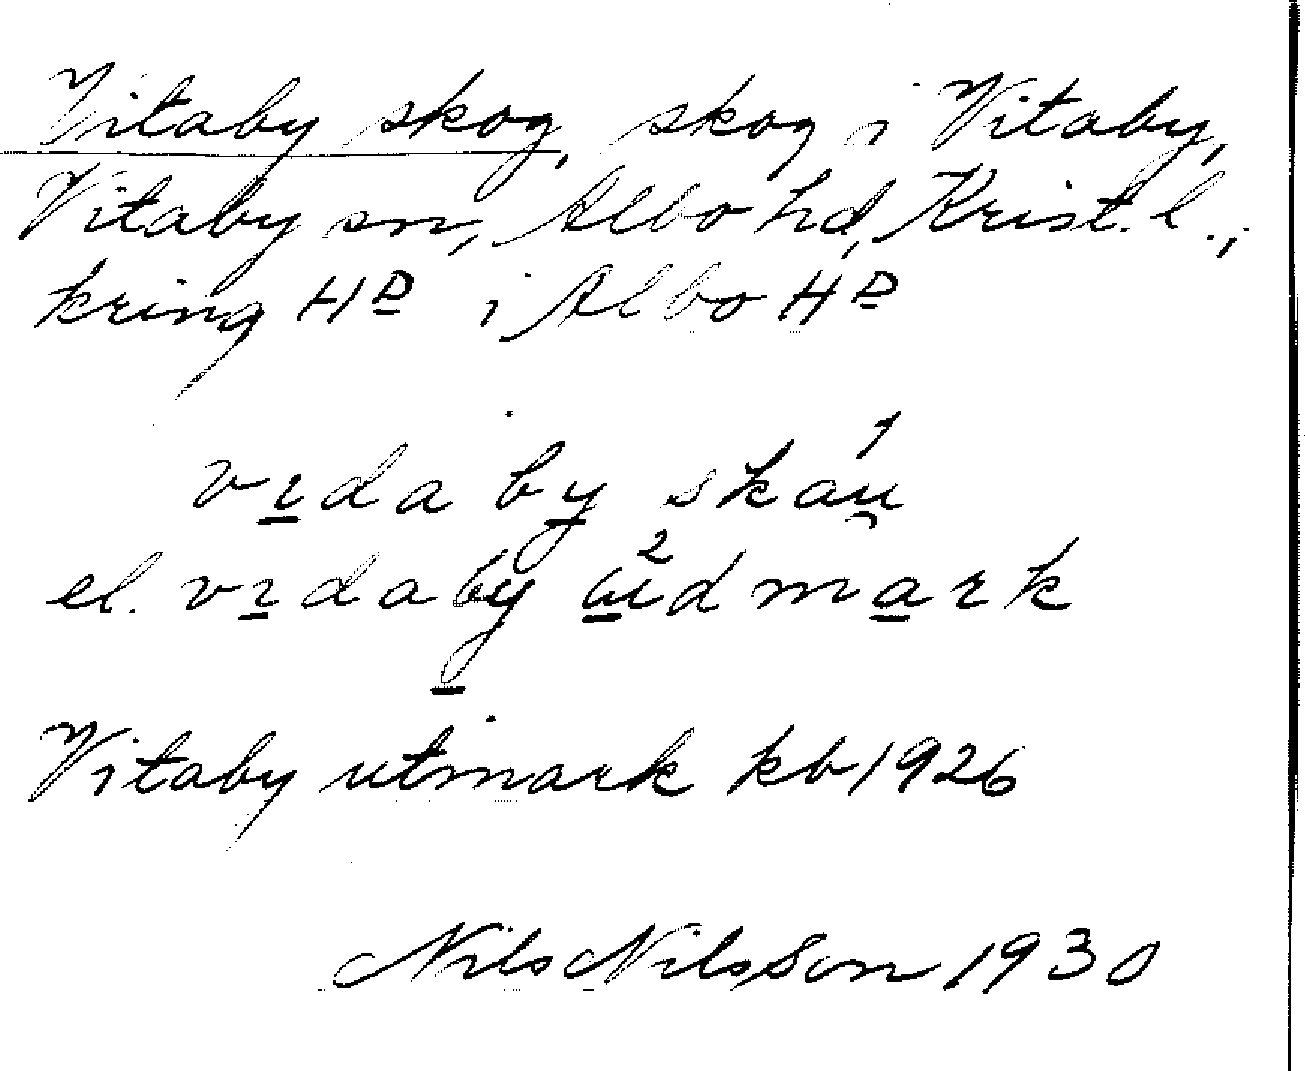 Vitaby skog, skog i Vitaby,
Vitaby sn, Albo hd, Krist. l.,
kring HD i Albo HD
vıdaby skáu
el. vıdaby ŭıdmark
Vitaby utmark kb 1926
Nils Nilsson 1930